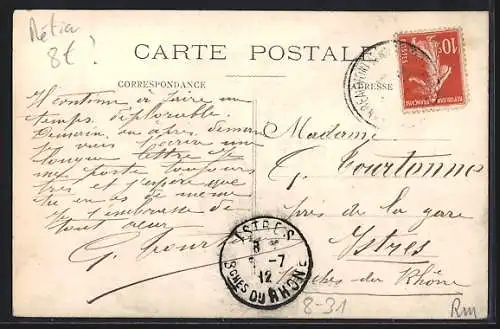 Métier
8t!
CARTE POSTALE
CORRESPONDANCE
ADRESSE
10c
POSTES
REPUBLIQUE FRANÇAISE
Il continue à faire un
temps déplorable.
Demain, ou après demain
je vais t'écrire une
longue lettre. Je
me porte toujours
très et j'espère que
tu en es de même
Je t'embrasse de
tout cœur
G. Tourt
Madame
G. Tourtonne
près de la gare
Istres
Bouches du Rhône
ISTRES
8
-7
12
BCHES DU RHÔNE
8-31
Rm